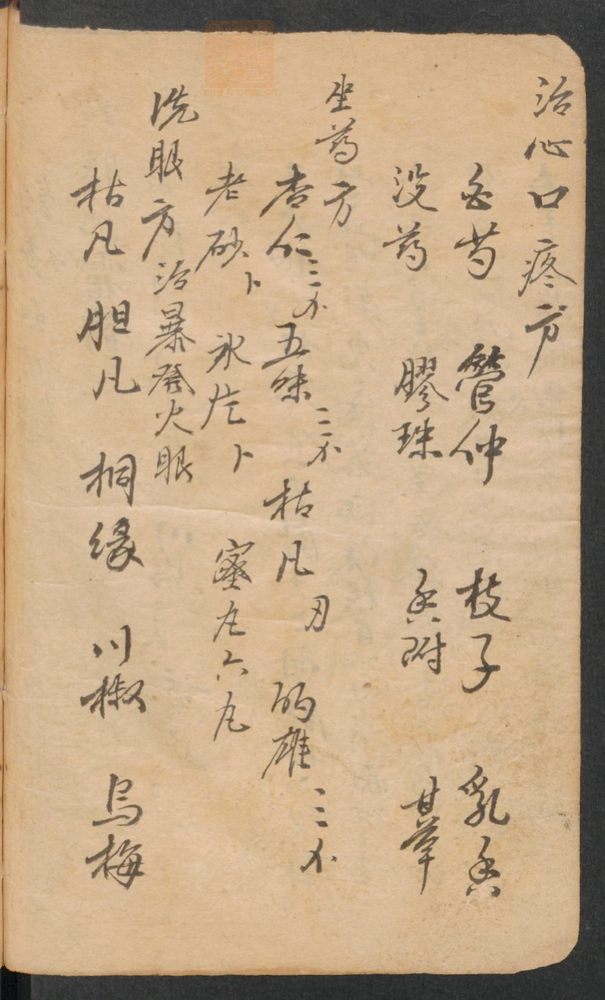 治心口疼方
白芍 管仲 枝子 乳香
没药 膠珠 香附 甘草
坐药方
杏仁三个 五味三个 枯凡 刃 的雄三个
老砂卜 氷片卜 蜜丸六丸
洗眼方治暴發火眼
枯凡 胆凡 桐缘 川椒 烏梅